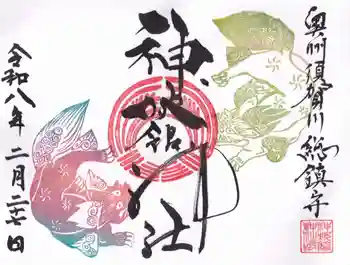 奥州須賀川総鎮守
神炊館神社
令和八年二月二十六日